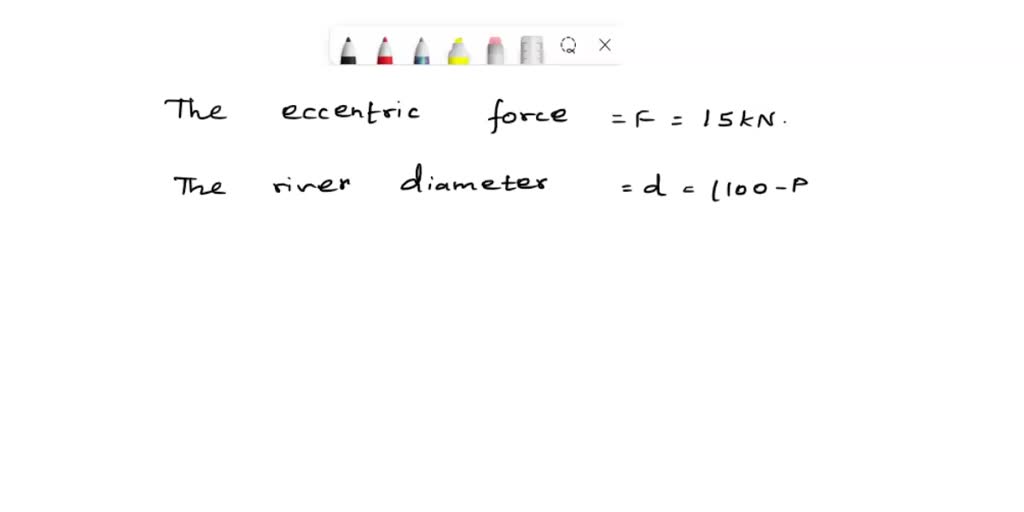 The eccentric force = F = 15kN.
The river diameter = d = (100-P